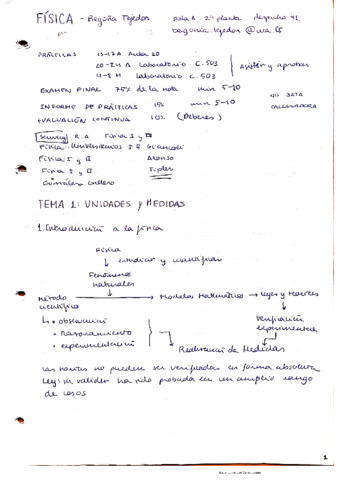 FÍSICA - Begoña Tejedor
aula A 2ª planta despacho 41
PRÁCTICAS
13-17 A Aula 20
20-24 A Laboratorio C.503
4-8 M Laboratorio C.503
Asistir y aprobar
EXAMEN FINAL 75% de la nota min 5-10
INFORME DE PRÁCTICAS 15% min 5-10
EVALUACIÓN CONTINUA 10% (Deberes)
NO
CALCULADORA
Serway R.A Física I y II
Física Giancoli
Física I y II Alonso
Física I y II Tipler
González
TEMA 1: UNIDADES y MEDIDAS
1. Introducción a la física
Física
↓ estudiar y cuantificar
Fenómenos
naturales
Método científico → Modelos Matemáticos → Leyes y Teorías
• observación
• razonamiento
• experimentación
Verificación
experimental
Realización de Medidas
Las teorías no pueden ser verificadas en forma absoluta
Ley: su validez ha sido probada en un amplio rango
de casos
1